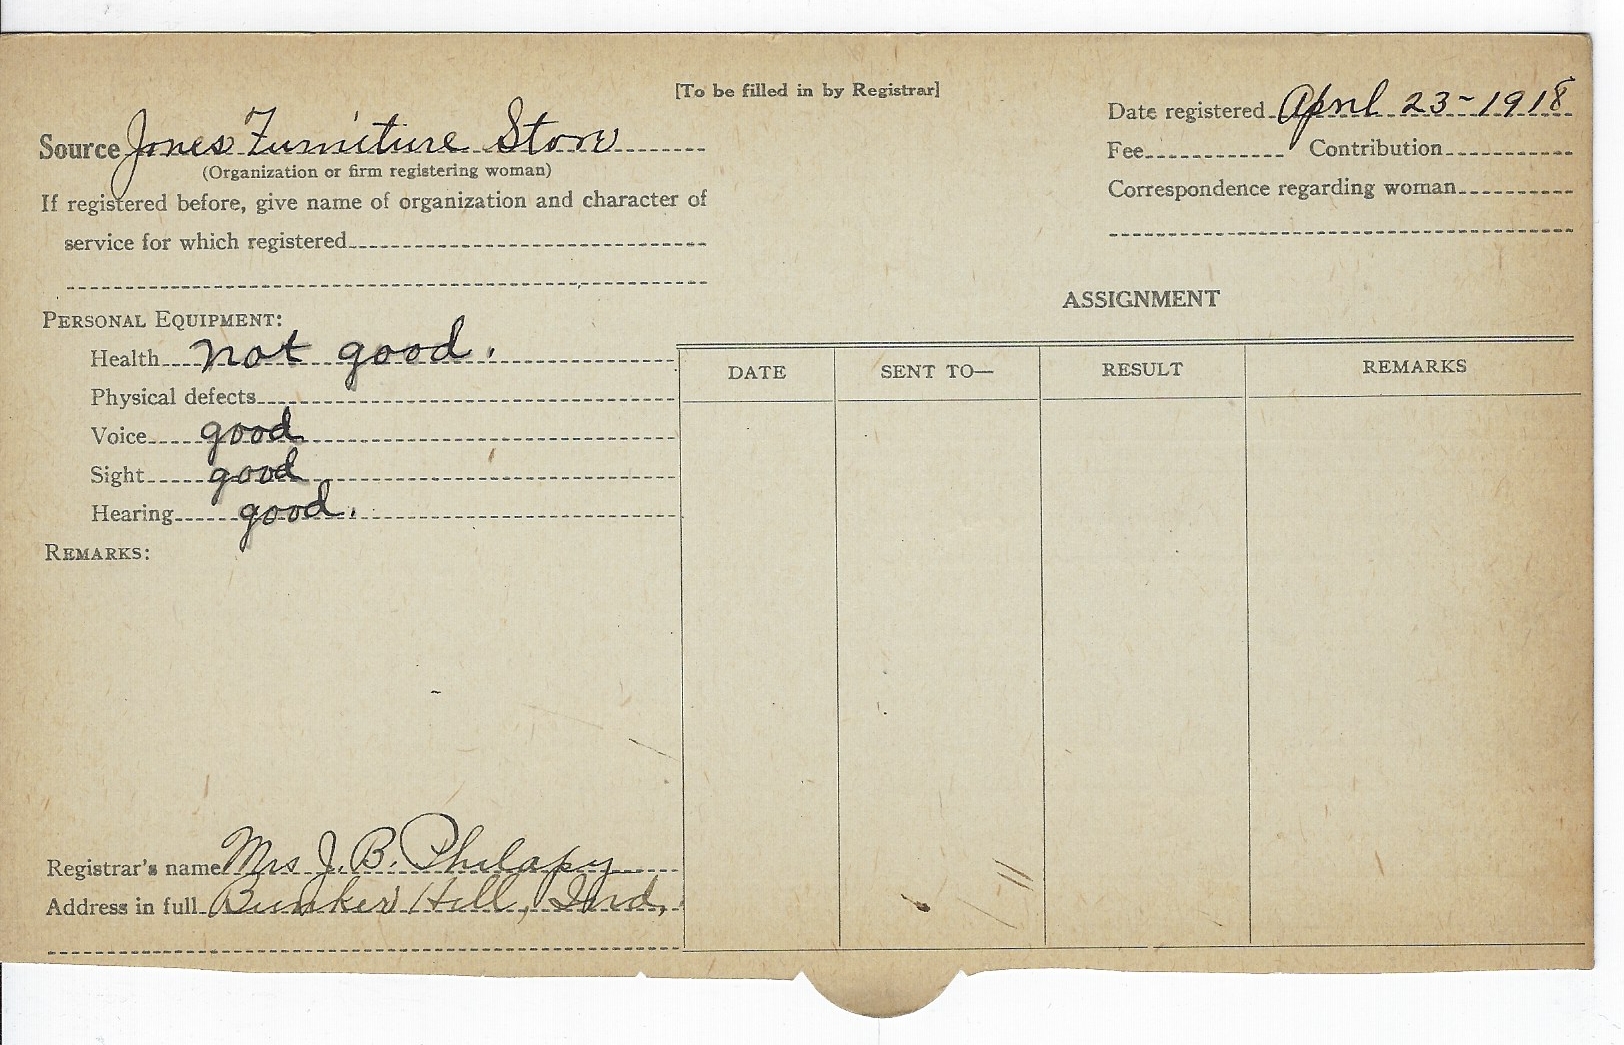 [To be filled in by Registrar]
Source Jones Furniture Store
(Organization or firm registering woman)
If registered before, give name of organization and character of
service for which registered
Date registered April 23-1918
Fee Contribution
Correspondence regarding woman
PERSONAL EQUIPMENT:
Health not good.
Physical defects
Voice good
Sight good
Hearing good.
REMARKS:
ASSIGNMENT
DATE SENT TO— RESULT REMARKS
Registrar's name Mrs J. B. Philapy
Address in full Bunker Hill, Ind.